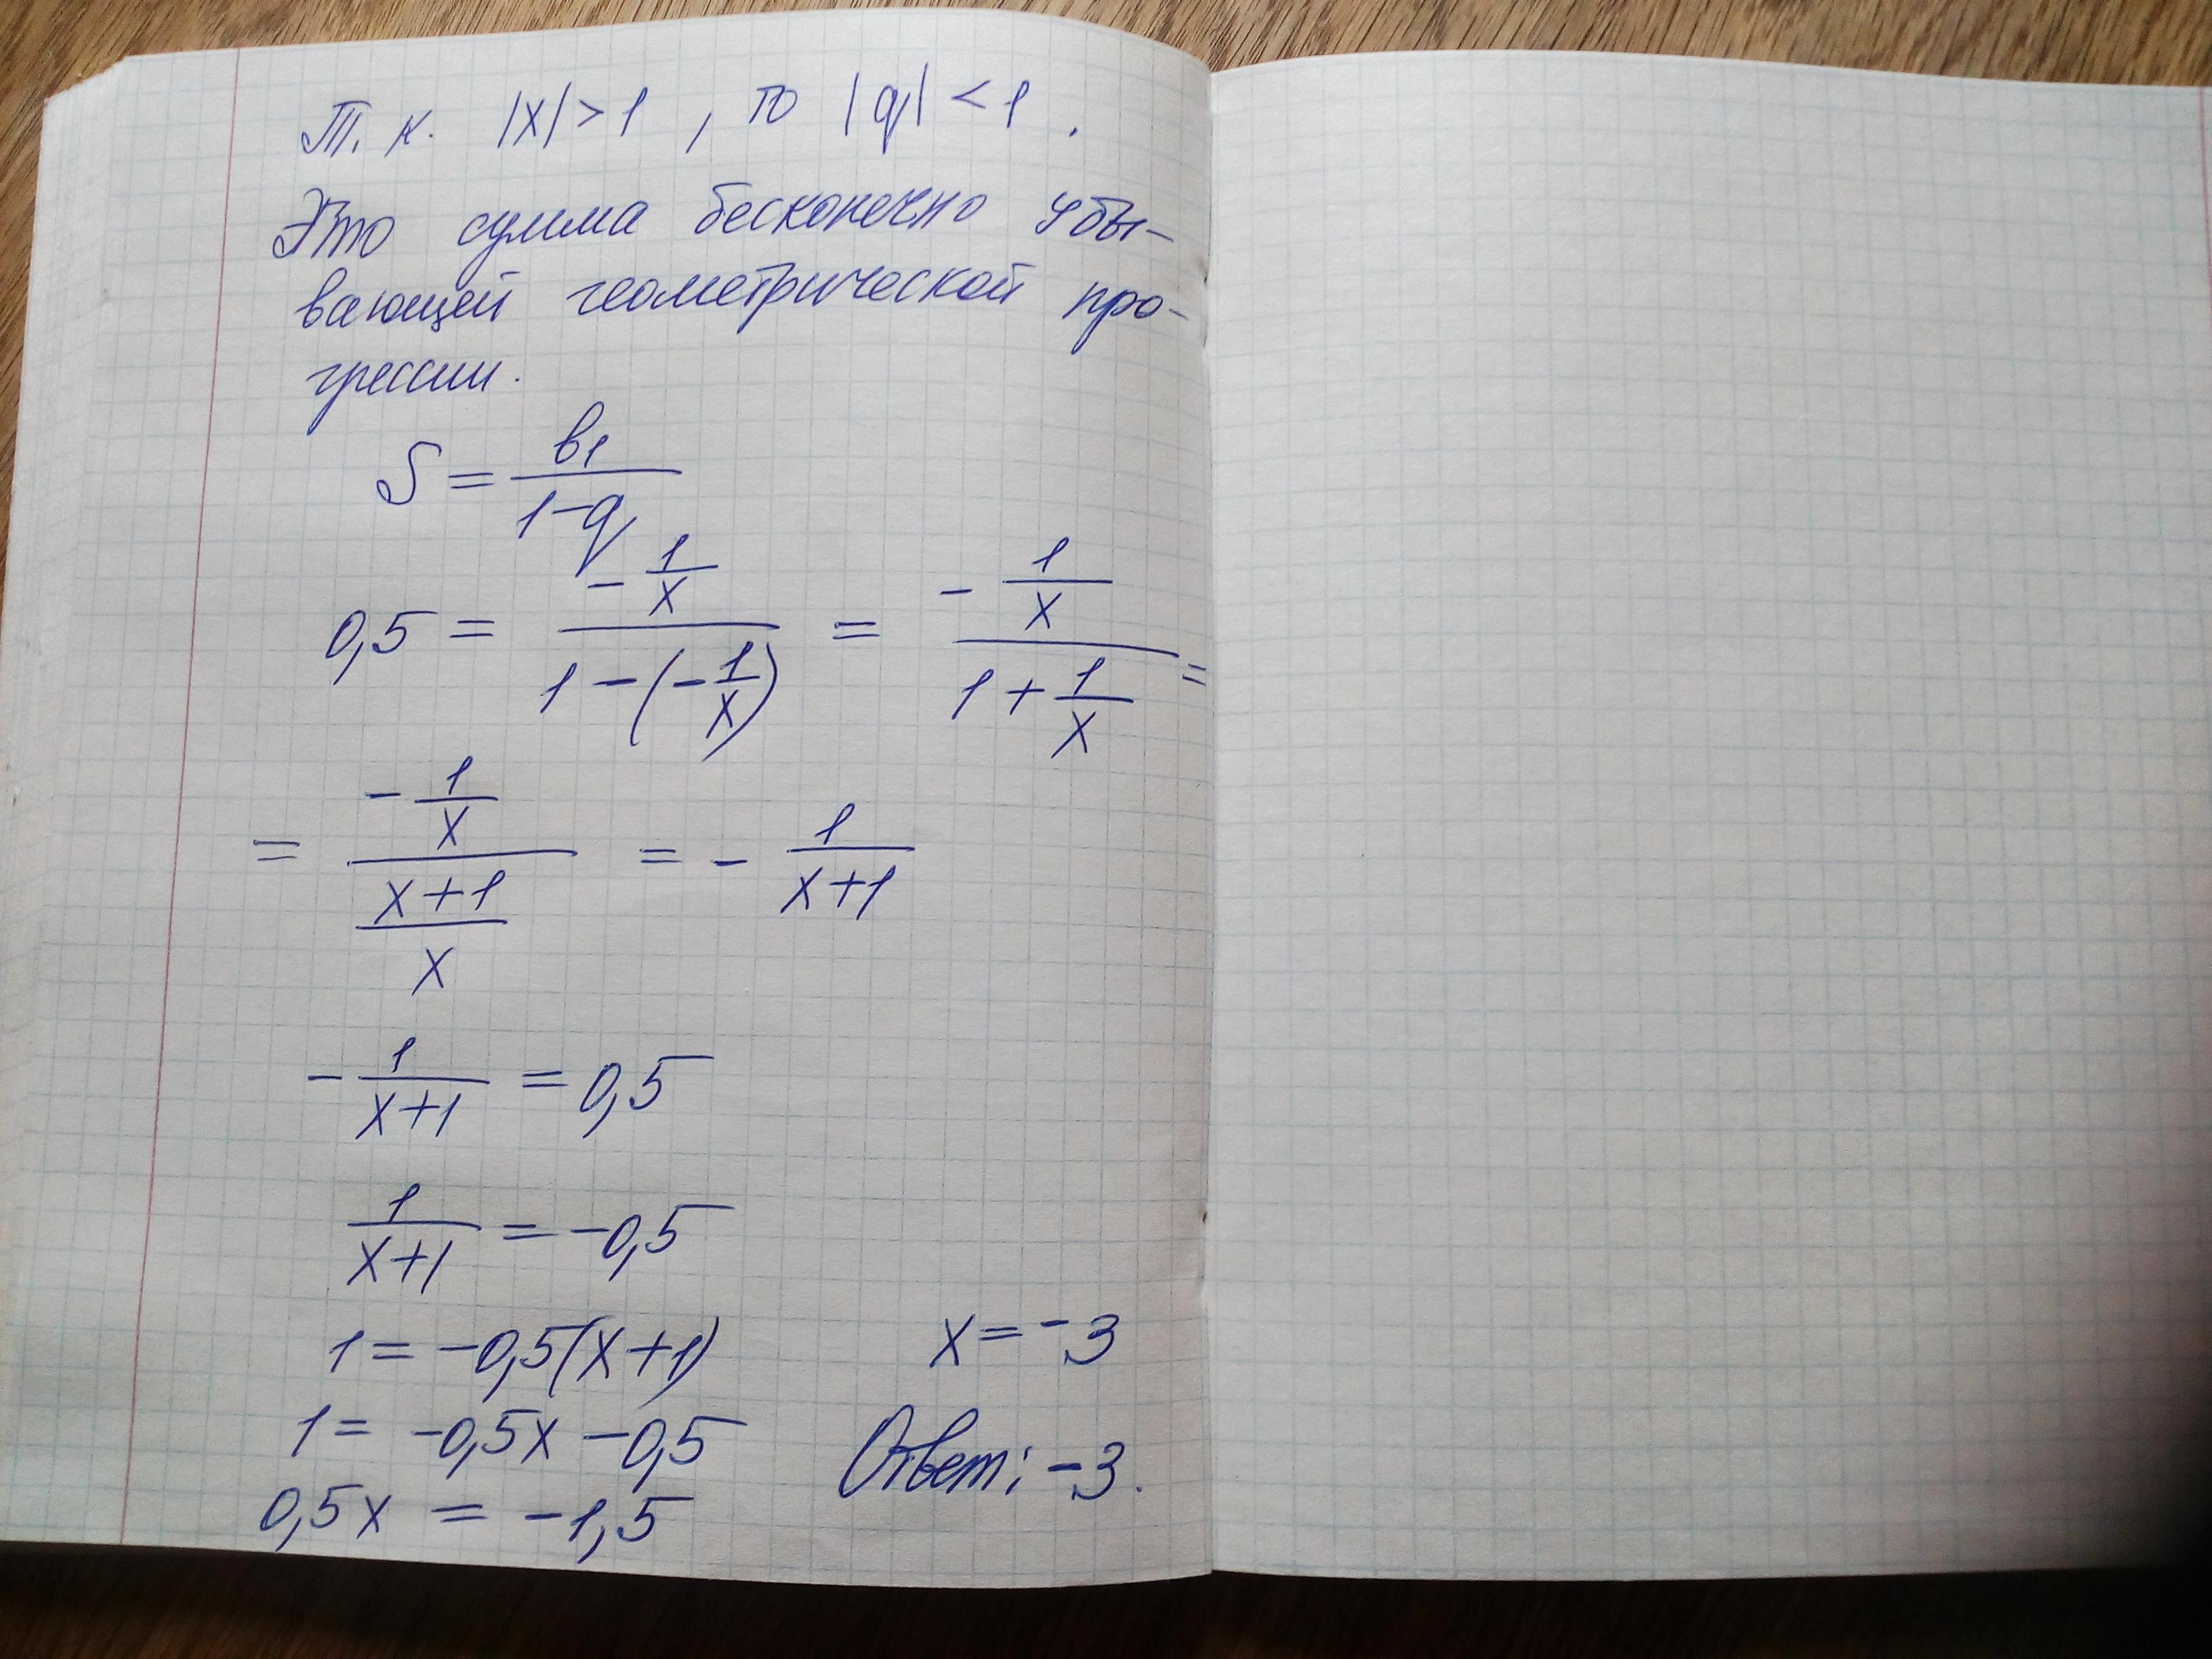 Т. к. |x| > 1, то |q| < 1.
Это сумма бесконечно убы-
вающей геометрической про-
грессии.
S = b1 / (1-q)
0,5 = (-1/x) / (1-(-1/x)) = (-1/x) / (1+1/x) =
= (-1/x) / ((x+1)/x) = -1/(x+1)
-1/(x+1) = 0,5
1/(x+1) = -0,5
1 = -0,5(x+1)
1 = -0,5x -0,5
0,5x = -1,5
x = -3
Ответ: -3.